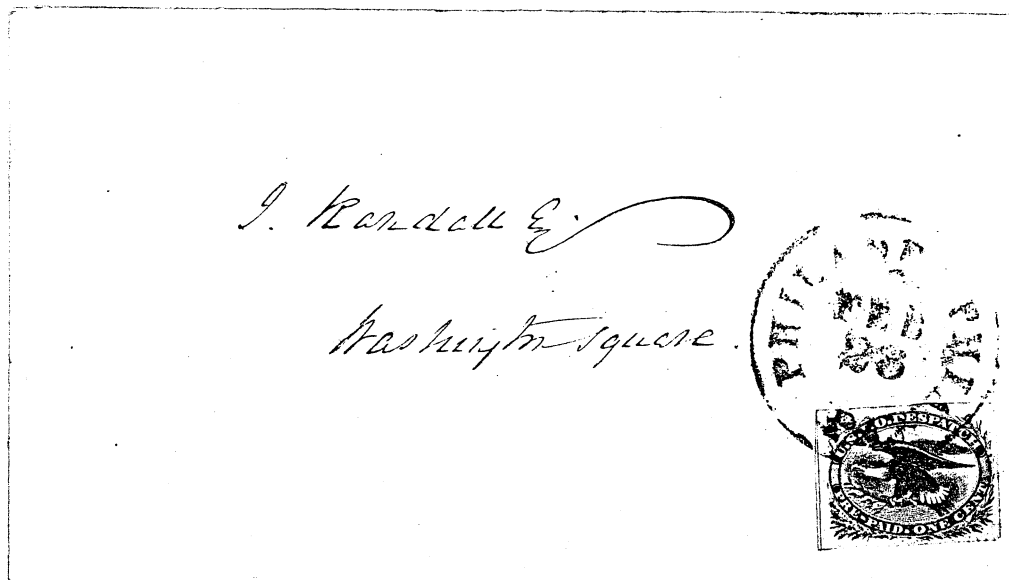 J. Randall Esq.
Washington Square.
PHILADA
FEB
23
U.S.P.O. DESPATCH
PRE-PAID. ONE CENT.